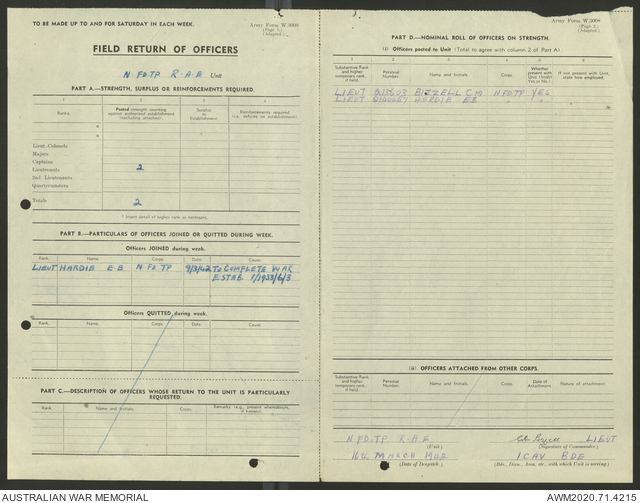 TO BE MADE UP TO AND FOR SATURDAY IN EACH WEEK.
Army Form W.3008
(Page 1.)
(Adapted.)
FIELD RETURN OF OFFICERS
N. FD. TP R.A.E Unit
PART A.—STRENGTH, SURPLUS OR REINFORCEMENTS REQUIRED.
1 2 3 4
Ranks. Posted strength counting against authorized establishment (excluding attached). Surplus to Establishment. Reinforcements required (i.e. deficits on establishment).
*
*
Lieut.-Colonels
Majors
Captains
Lieutenants 2
2nd Lieutenants
Quartermasters
Totals 2
* Insert detail of higher rank as necessary.
PART B.—PARTICULARS OF OFFICERS JOINED OR QUITTED DURING WEEK.
Officers JOINED during week.
Rank. Name. Corps. Date. Cause.
LIEUT HARDIE E B N. FD. TP 9/3/42 TO COMPLETE WAR
ESTAB.
Officers QUITTED during week.
Rank. Name. Corps. Date. Cause.
PART C.—DESCRIPTION OF OFFICERS WHOSE RETURN TO THE UNIT IS PARTICULARLY REQUESTED.
Rank. Name and Initials. Corps. Remarks (e.g., present whereabouts, if known).
Army Form W.3008
(Page 2.)
(Adapted.)
PART D.—NOMINAL ROLL OF OFFICERS ON STRENGTH.
(i) Officers posted to Unit (Total to agree with column 2 of Part A)
1 2 3 4 5 6
Substantive Rank and higher temporary rank, if held. Personal Number. Name and Initials. Corps. Whether present with Unit (Insert Yes or No.) If not present with Unit, state how employed.
LIEUT BIZZELL C M N FD TP YES
LIEUT HARDIE E B
(ii) OFFICERS ATTACHED FROM OTHER CORPS.
Substantive Rank and higher temporary rank, if held. Personal Number. Name and Initials. Corps. Date of Attachment. Nature of attachment.
N. FD. TP R.A.E LIEUT
(Unit). (Signature of Commander)
16th MARCH 1 CAV BDE
(Date of Despatch). (Bde., Divn., Area, etc., with which Unit is serving)
AUSTRALIAN WAR MEMORIAL
AWM2020.71.4215